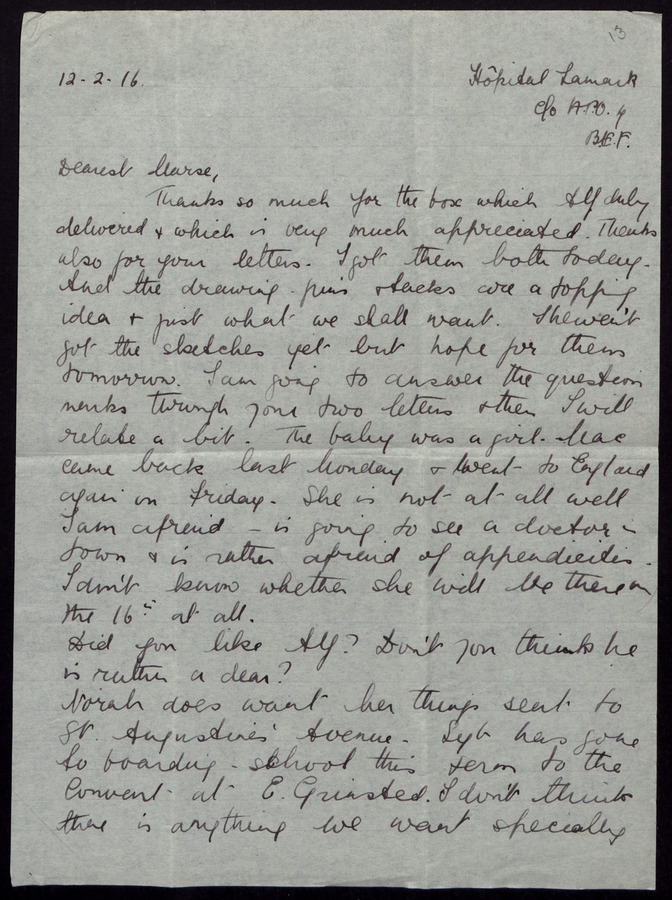 13
12-2-16.
Hôpital Lamark
c/o A.P.O. 4
B.E.F.
Dearest Nurse,
Thanks so much for the box which Alf duly
delivered & which is very much appreciated. Thanks
also for your letters. I got them both today.
And the drawing-pins & tacks are a topping
idea & just what we shall want. I haven't
got the sketches yet but hope for them
tomorrow. I am going to answer the question
marks through your two letters & then I will
relate a bit. The baby was a girl. Mac
came back last Monday & went to England
again on Friday. She is not at all well
I am afraid - is going to see a doctor in
town & is rather afraid of appendicitis.
I don't know whether she will be there on
the 16th at all.
Did you like Alf? Don't you think he
is rather a dear?
Norah does want her things sent to
St. Augustine's Avenue. Syb has gone
to boarding-school this term to the
Convent at E. Grinsted. I don't think
there is anything we want specially